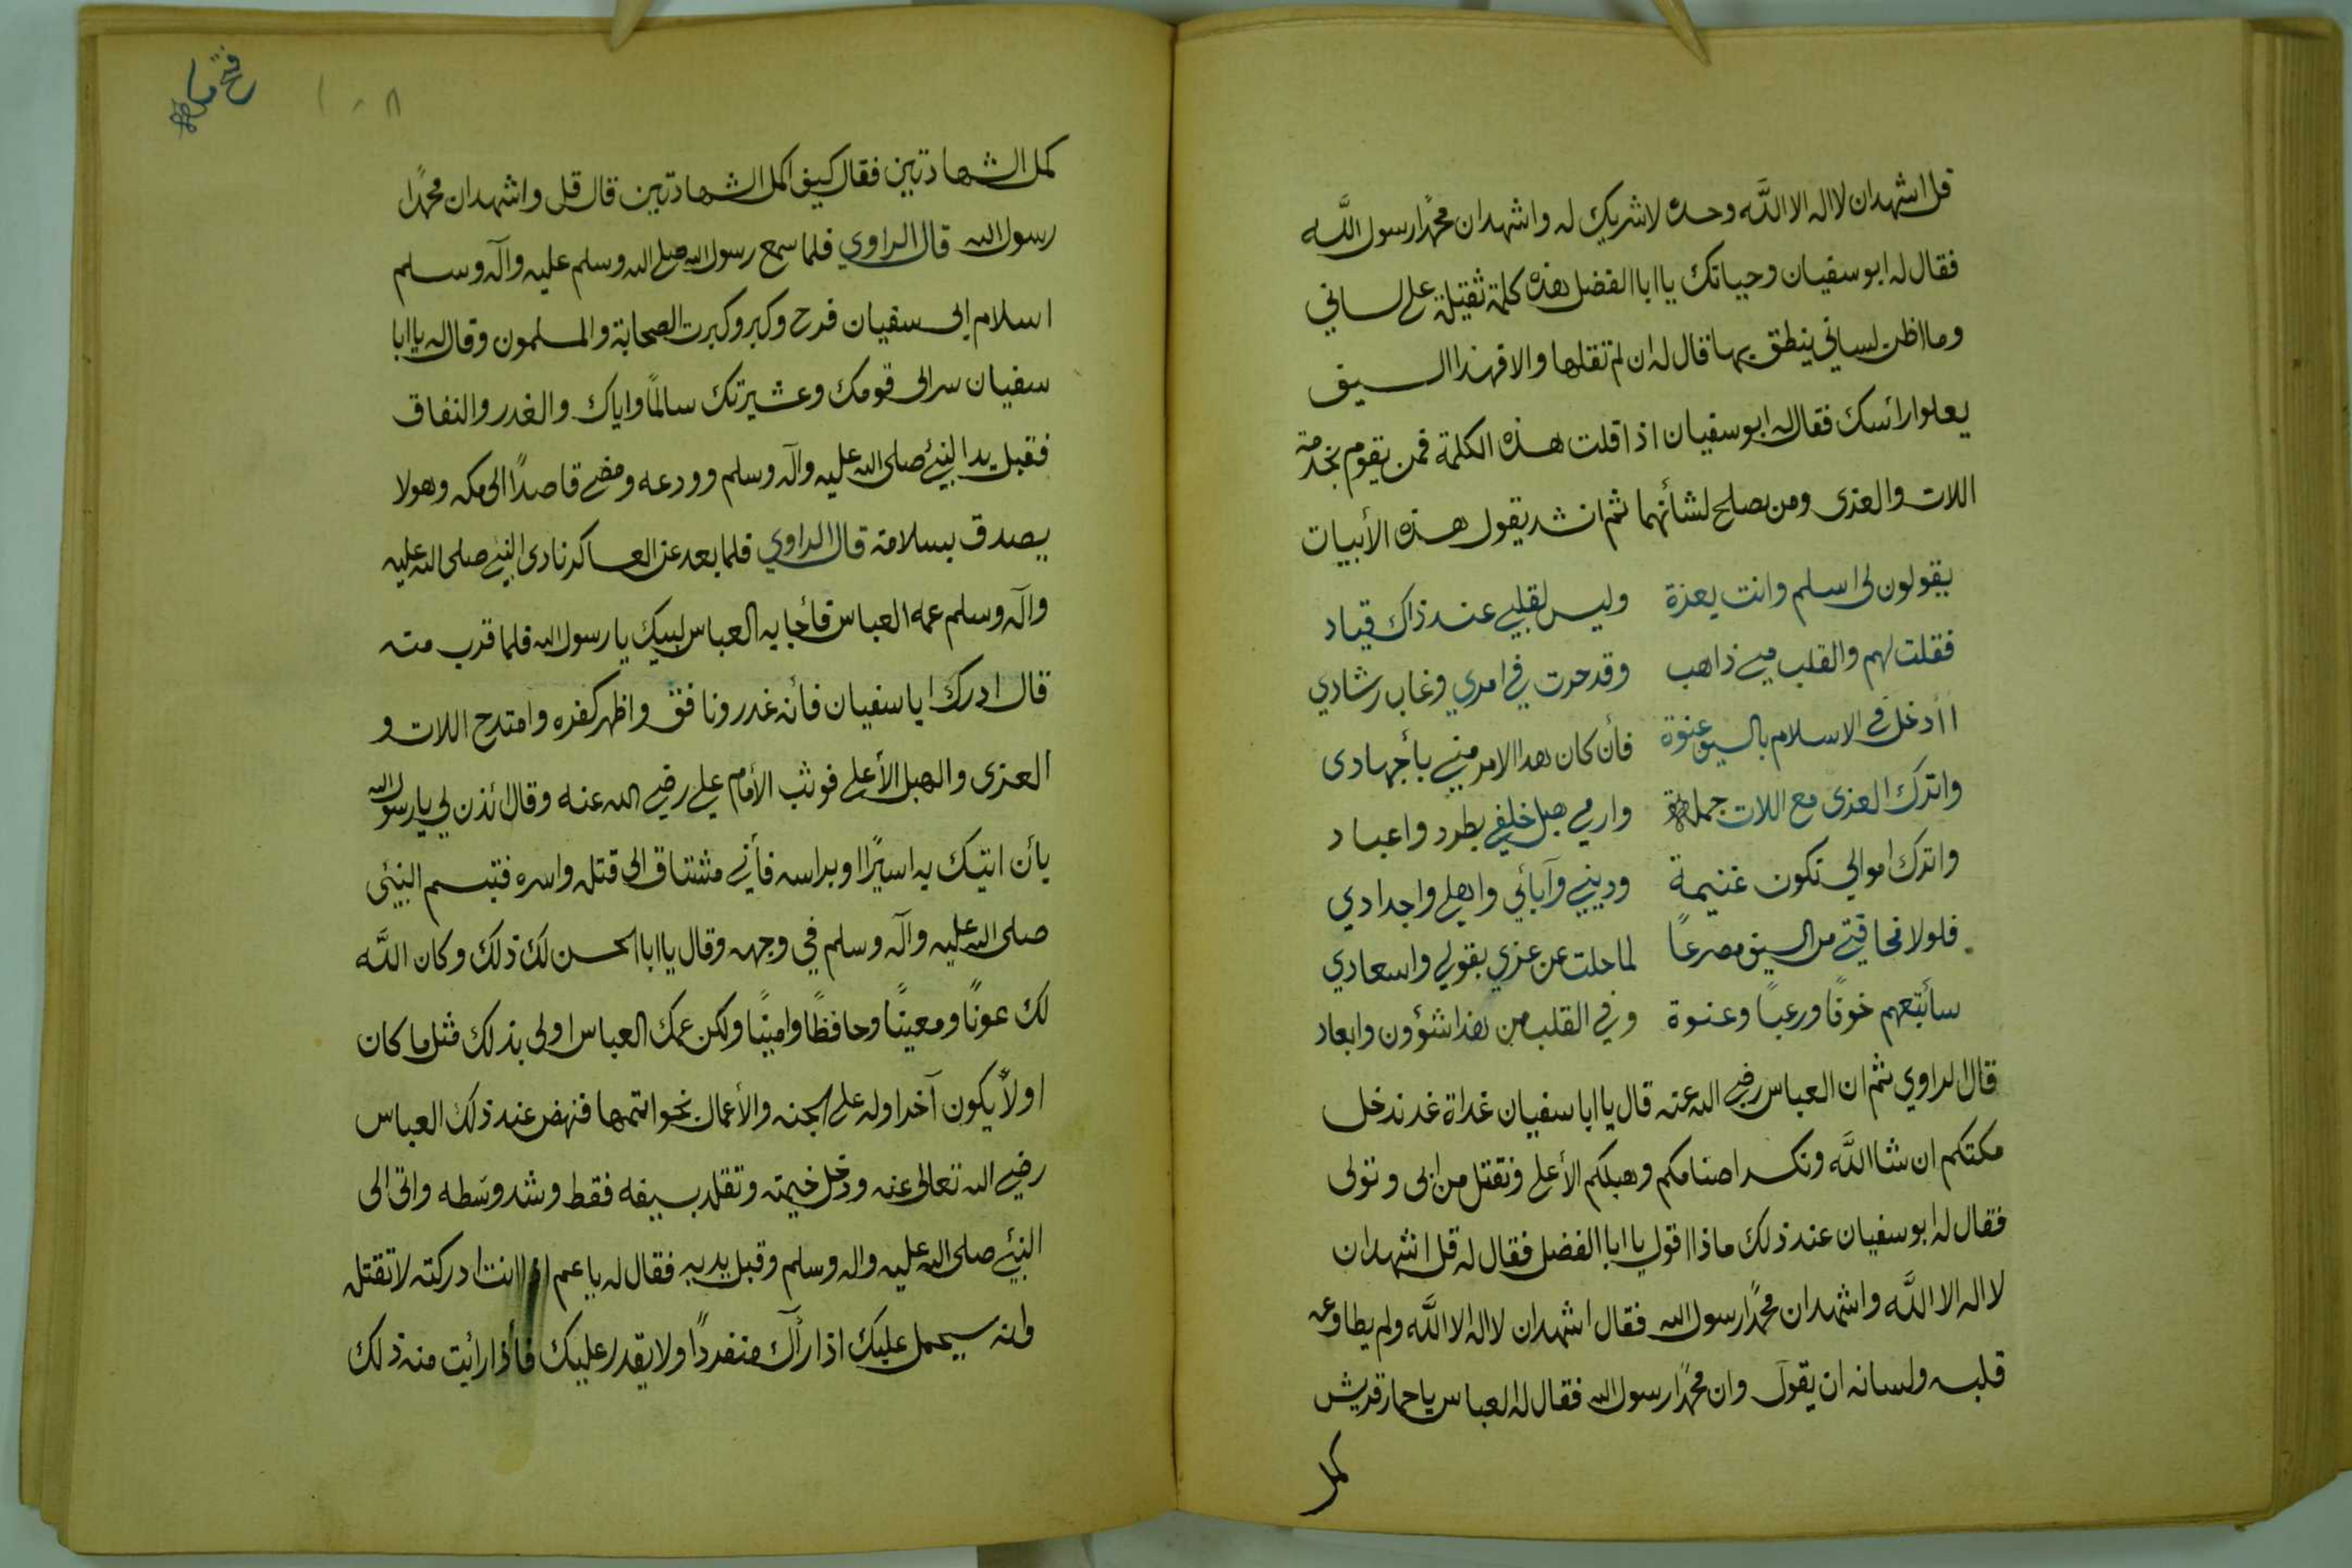 قل اشهد ان لا اله الا الله وحده لا شريك له واشهد ان محمدًا رسول الله
فقال له ابو سفيان وحياتك يا ابا الفضل هذه كلمة ثقيلة على لساني
وما اظن لساني ينطق بها قال له ان لم تقلها والا فهذا السيف
يعلوا رائسك فقال له ابو سفيان اذا قلت هذه الكلمة فمن يقوم بخدمة
اللات والعزى ومن يصلح لشأنهما ثم انشد يقول هذه الأبيات
يقولون لى اسلم وانت بعزة وليس لقلبي عند ذاك قياد
فقلت لهم والقلب مني ذاهب وقد حرت في امري وغاب رشادي
اأدخل في الاسلام بالسيف عنوة فأن كان هدا الامر مني بأجهادى
واترك العزى مع اللات جملة وارمي هبل خلفي بطرد واعباد
واترك اموالي تكون غنيمة وديني وآبائي واهلي واجدادي
فلولا مخافتي من السيف مصرعًا لما حلت عن عزي بقولي واسعادي
سأتبعهم خوفًا ورعبًا وعنوة وفي القلب من هذا شؤون وابعاد
قال الراوي ثم ان العباس رضي الله عنه قال يا ابا سفيان غداة غد ندخل
مكتكم ان شا الله ونكسر اصنامكم وهبلكم الأعلى ونقتل من ابى وتولى
فقال له ابو سفيان عند ذلك ماذا اقول يا ابا الفضل فقال له قل اشهد ان
لا اله الا الله واشهد ان محمدًا رسول الله فقال اشهد ان لا اله الا الله ولم يطاوعه
قلبه ولسانه ان يقول وان محمدًا رسول الله فقال له العباس يا حمار قريش
كمل
١٠٨
فتح مكة
كمل الشهادتين فقال كيف اكمل الشهادتين قال قل واشهد ان محمدًا
رسول الله قال الراوي فلما سمع رسول الله صلى الله وسلم عليه وآله وسلم
اسلام ابى سفيان فرح وكبر وكبرت الصحابة والمسلمون وقال له يا ابا
سفيان سر الى قومك وعشيرتك سالمًا واياك والغدر والنفاق
فقبل يد النبي صلى الله عليه وآله وسلم وودعه ومضى قاصدًا الى مكه وهو لا
يصدق بسلامته قال الراوي فلما بعد عن العساكر نادى النبي صلى الله عليه
وآله وسلم عمه العباس فأجابه العباس لبيك يا رسول الله فلما قرب منه
قال ادرك ابا سفيان فأنه غدر ونافق واظهر كفره وامتدح اللات و
العزى والهبل الأعلى فوثب الأمام علي رضي الله عنه وقال ائذن لي يا رسول الله
بأن اتيك به اسيرًا او براسه فأني مشتاق الى قتله واسره فتبسم النبي
صلى الله عليه وآله وسلم في وجهه وقال يا ابا الحسن لك ذلك وكان الله
لك عونًا ومعينًا وحافظًا وامينًا ولكن عمك العباس اولى بذلك مثل ما كان
اولاً يكون آخرا وله على الجنه والأعمال بخواتمها فنهض عند ذلك العباس
رضي الله تعالى عنه ودخل خيمته وتقلد بسيفه فقط وشد وسطه واتى الى
النبي صلى الله عليه واله وسلم وقبل يديه فقال له يا عم انت ادركته لا تقتله
وانه سيحمل عليك اذا رآك منفردًا ولا يقدر عليك فأذا رائيت منه ذلك